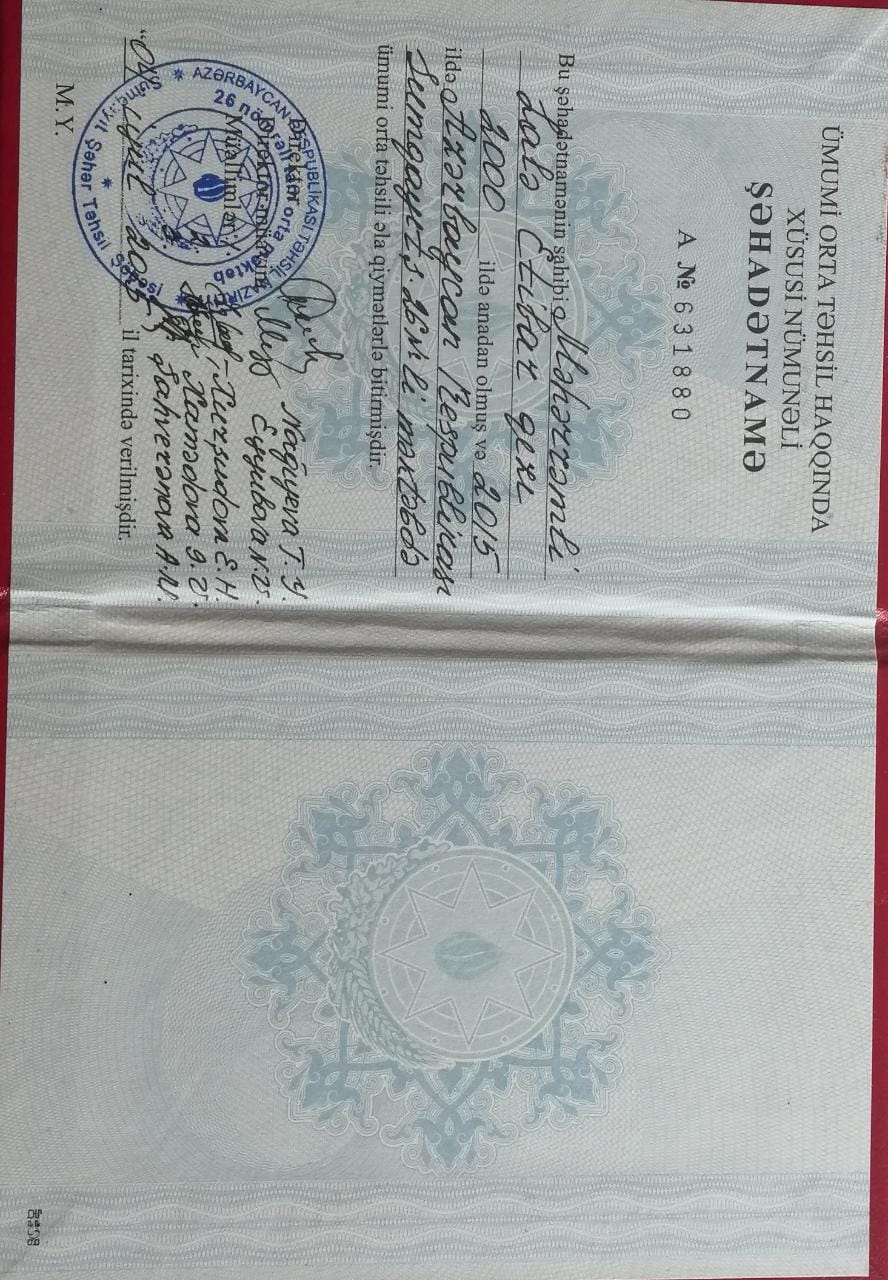 ÜMUMİ ORTA TƏHSİL HAQQINDA
XÜSUSİ NÜMUNƏLİ
ŞƏHADƏTNAMƏ
A № 631880
Bu şəhadətnamənin sahibi Məhərrəmli
Lalə Etibar qızı
2000 ildə anadan olmuş və 2015
ildə Azərbaycan Respublikası
Sumqayıt ş. 26 №-li məktəbdə
ümumi orta təhsili əla qiymətlərlə bitirmişdir.
Direktor Nağıyeva T. Y.
Direktor müavini Eyyubova N.
Müəllimlər: 1. Xurşudova E. H.
2. Məmədova
3. Şahverənova A. M.
"04" iyul 2015 il tarixində verilmişdir.
M.Y.
AZƏRBAYCAN RESPUBLİKASI TƏHSİL NAZİRLİYİ
Sumqayıt Şəhər Təhsil Şöbəsi
26 nömrəli orta məktəb